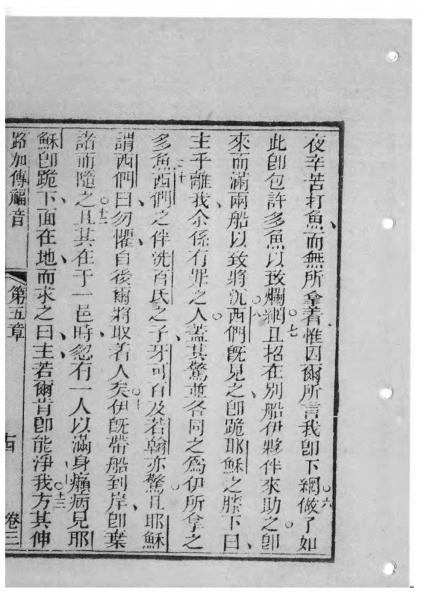 夜辛苦打魚而無所拿着惟因爾所言我即下網○六做了如
此即包許多魚以致爛網○七且招在別船伊夥伴來助之即
來而滿兩船以致將沉○八西們既見之即跪耶穌之膝下曰
主乎離我余係有罪之人○九蓋其驚並各同之為伊所拿之
多魚○十西們之伴洗百氏之子牙可百及若翰亦驚且耶穌
謂西們曰勿懼自後爾將取者人矣○十一伊既帶船到岸即棄
諸而隨之○十二且其在于一邑時忽有一人以滿身癩病見耶
穌即跪下面在地而求之曰主若爾肯即能淨我○十三方其伸
路加傳福音 第五章 十四 卷三